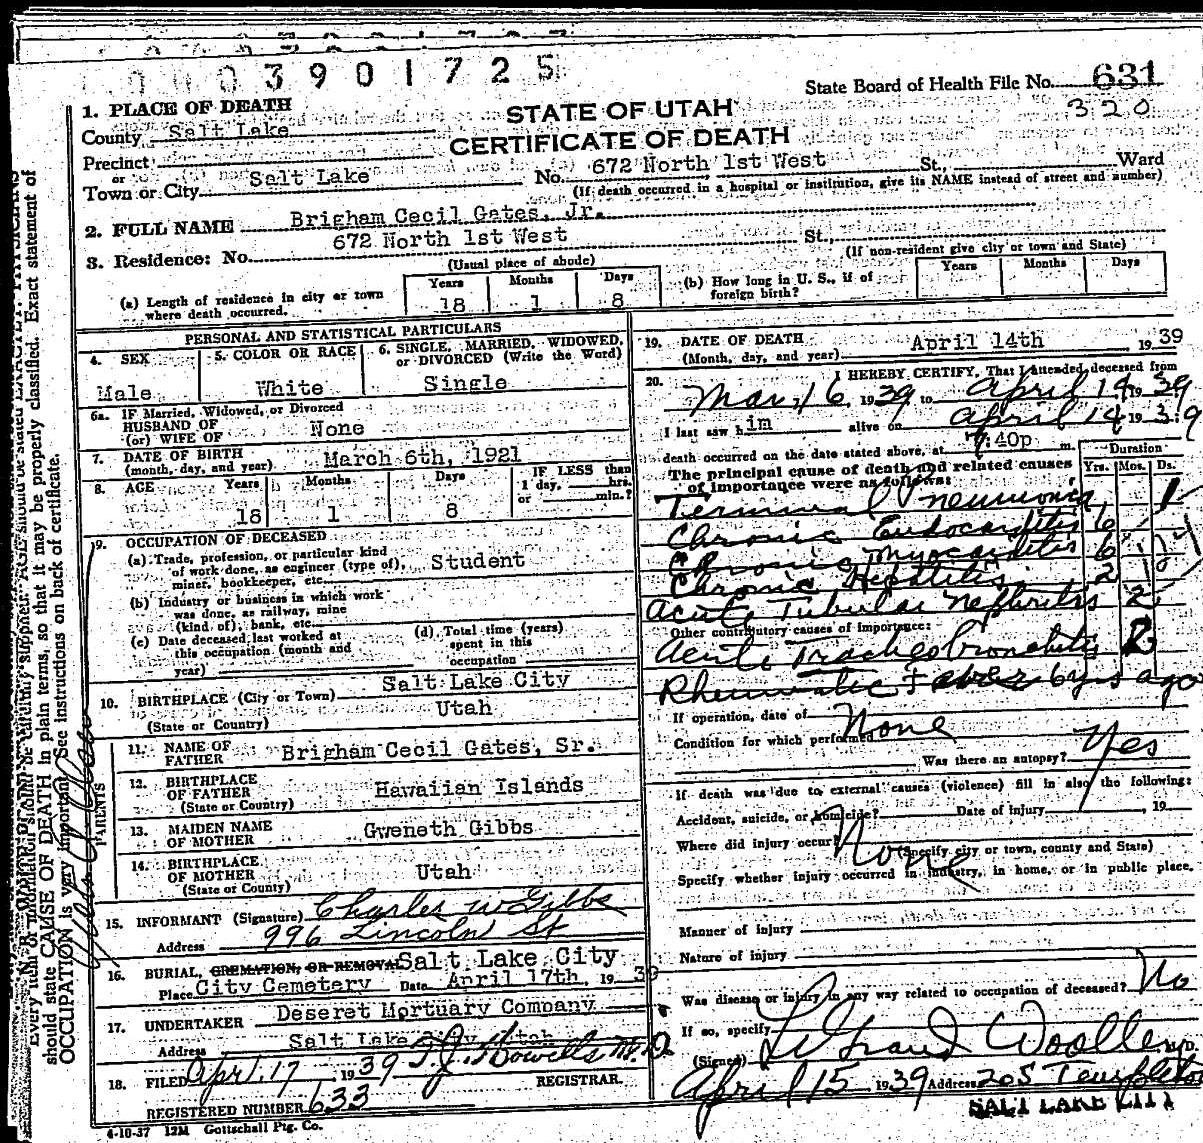 3901725
State Board of Health File No. 631
320
STATE OF UTAH
CERTIFICATE OF DEATH
1. PLACE OF DEATH
County Salt Lake
Precinct
or
Town or City Salt Lake No. 672 North 1st West St., Ward
(If death occurred in a hospital or institution, give its NAME instead of street and number)
2. FULL NAME Brigham Cecil Gates, Jr.
3. Residence: No. 672 North 1st West St.,
(Usual place of abode) (If non-resident give city or town and State)
(a) Length of residence in city or town where death occurred. Years 18 Months 1 Days 8
(b) How long in U. S., if of foreign birth? Years Months Days
PERSONAL AND STATISTICAL PARTICULARS
4. SEX Male
5. COLOR OR RACE White
6. SINGLE, MARRIED, WIDOWED, or DIVORCED (Write the Word) Single
6a. IF Married, Widowed, or Divorced
HUSBAND OF
(or) WIFE OF None
7. DATE OF BIRTH
(month, day, and year) March 6th, 1921
8. AGE Years 18 Months 1 Days 8 IF LESS than 1 day, hrs. or min.?
9. OCCUPATION OF DECEASED
(a) Trade, profession, or particular kind
of work done, as engineer (type of), Student
miner, bookkeeper, etc.
(b) Industry or business in which work
was done, as railway, mine
(kind of), bank, etc.
(c) Date deceased last worked at
this occupation (month and
year)
(d) Total time (years)
spent in this
occupation
10. BIRTHPLACE (City or Town) Salt Lake City
(State or Country) Utah
PARENTS
11. NAME OF FATHER Brigham Cecil Gates, Sr.
12. BIRTHPLACE OF FATHER
(State or Country) Hawaiian Islands
13. MAIDEN NAME OF MOTHER Gweneth Gibbs
14. BIRTHPLACE OF MOTHER
(State or County) Utah
15. INFORMANT (Signature) Charles W Gibbs
Address 996 Lincoln St
16. BURIAL, CREMATION, OR REMOVAL Salt Lake City
Place City Cemetery Date April 17th, 1939
17. UNDERTAKER Deseret Mortuary Company
Address Salt Lake City Utah
18. FILED Apr. 17 1939 T.J. Howells M.D.
REGISTRAR.
REGISTERED NUMBER 633
4-10-37 12M Gottschall Ptg. Co.
19. DATE OF DEATH
(Month, day, and year) April 14th 1939
20. I HEREBY CERTIFY, That I attended deceased from
Mar. 16 1939 to April 14 1939
I last saw him alive on April 14 1939
death occurred on the date stated above, at 7:40p m.
The principal cause of death and related causes
of importance were as follows:
Duration
Yrs. Mos. Ds.
Terminal Pneumonia 1
Chronic Endocarditis 6
Chronic Myocarditis 6
Chronic Hepatitis 2
Acute Tubular Nephritis 2
Other contributory causes of importance:
Acute Tracheobronchitis 2
Rheumatic Fever 6 yrs ago
If operation, date of None
Condition for which performed
Was there an autopsy? Yes
If death was due to external causes (violence) fill in also the following:
Accident, suicide, or homicide? Date of injury 19
Where did injury occur? None
(Specify city or town, county and State)
Specify whether injury occurred in industry, in home, or in public place.
Manner of injury
Nature of injury
Was disease or injury in any way related to occupation of deceased? No
If so, specify
(Signed) LeGrand Woolley M.D.
April 15 1939 Address 20 S Temple
SALT LAKE CITY
should state CAUSE OF DEATH in plain terms, so that it may be properly classified. Exact statement of
OCCUPATION is very important. See instructions on back of certificate.